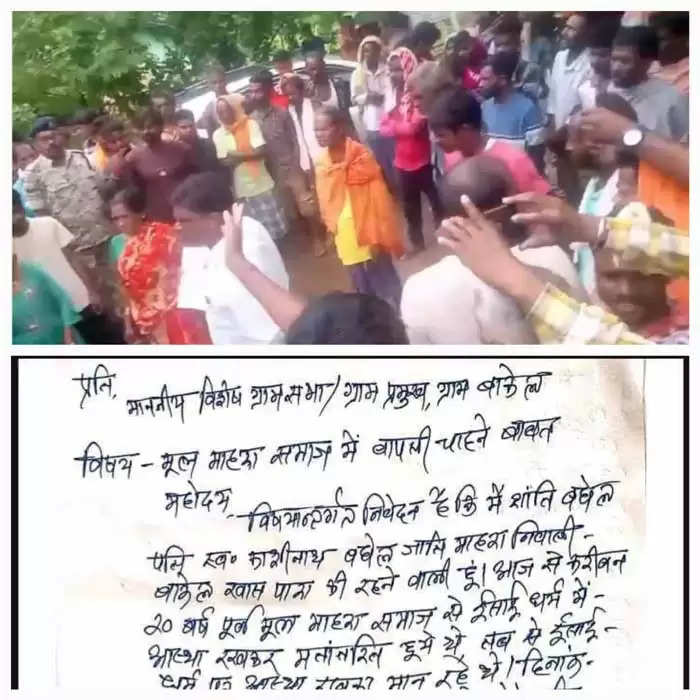 प्रति,
माननीय विशेष ग्रामसभा/ ग्राम प्रमुख, ग्राम बाकेल
विषय - मूल माहरा समाज में वापसी चाहने बाबत
महोदय
विषयान्तर्गत निवेदन है कि मैं शांति बघेल
पति स्व० काशीनाथ बघेल जाति माहरा निवासी -
बाकेल खास पारा की रहने वाली हूं। आज से करीबन
20 वर्ष पूर्व मूल माहरा समाज से ईसाई धर्म में -
आस्था रखकर मतांतरित हुये थे, तब से ईसाई -
धर्म पर आस्था रखकर मान रहे थे। दिनांक -